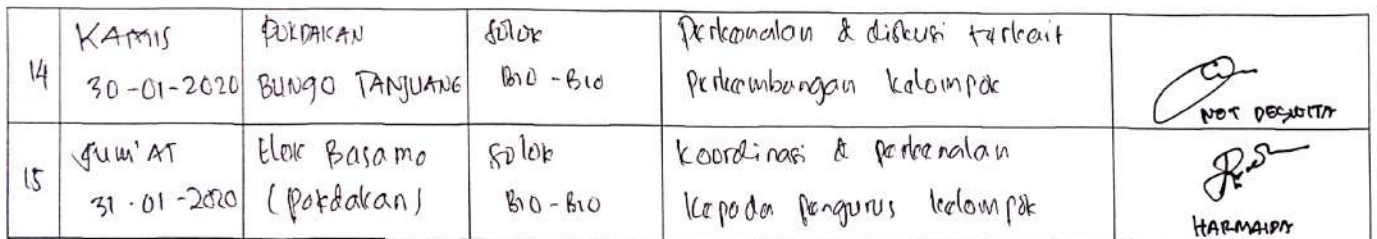 14 KAMIS 30-01-2020 POKDAKAN BUNGO TANJUANG Solok BIO-BIO Perkenalan & diskusi terkait Perkembangan Kelompok
15 Jum'AT 31-01-2020 Elok Basamo (Pokdakan) Solok BIO-BIO Koordinasi & perkenalan Kepada pengurus kelompok HARMAIDA